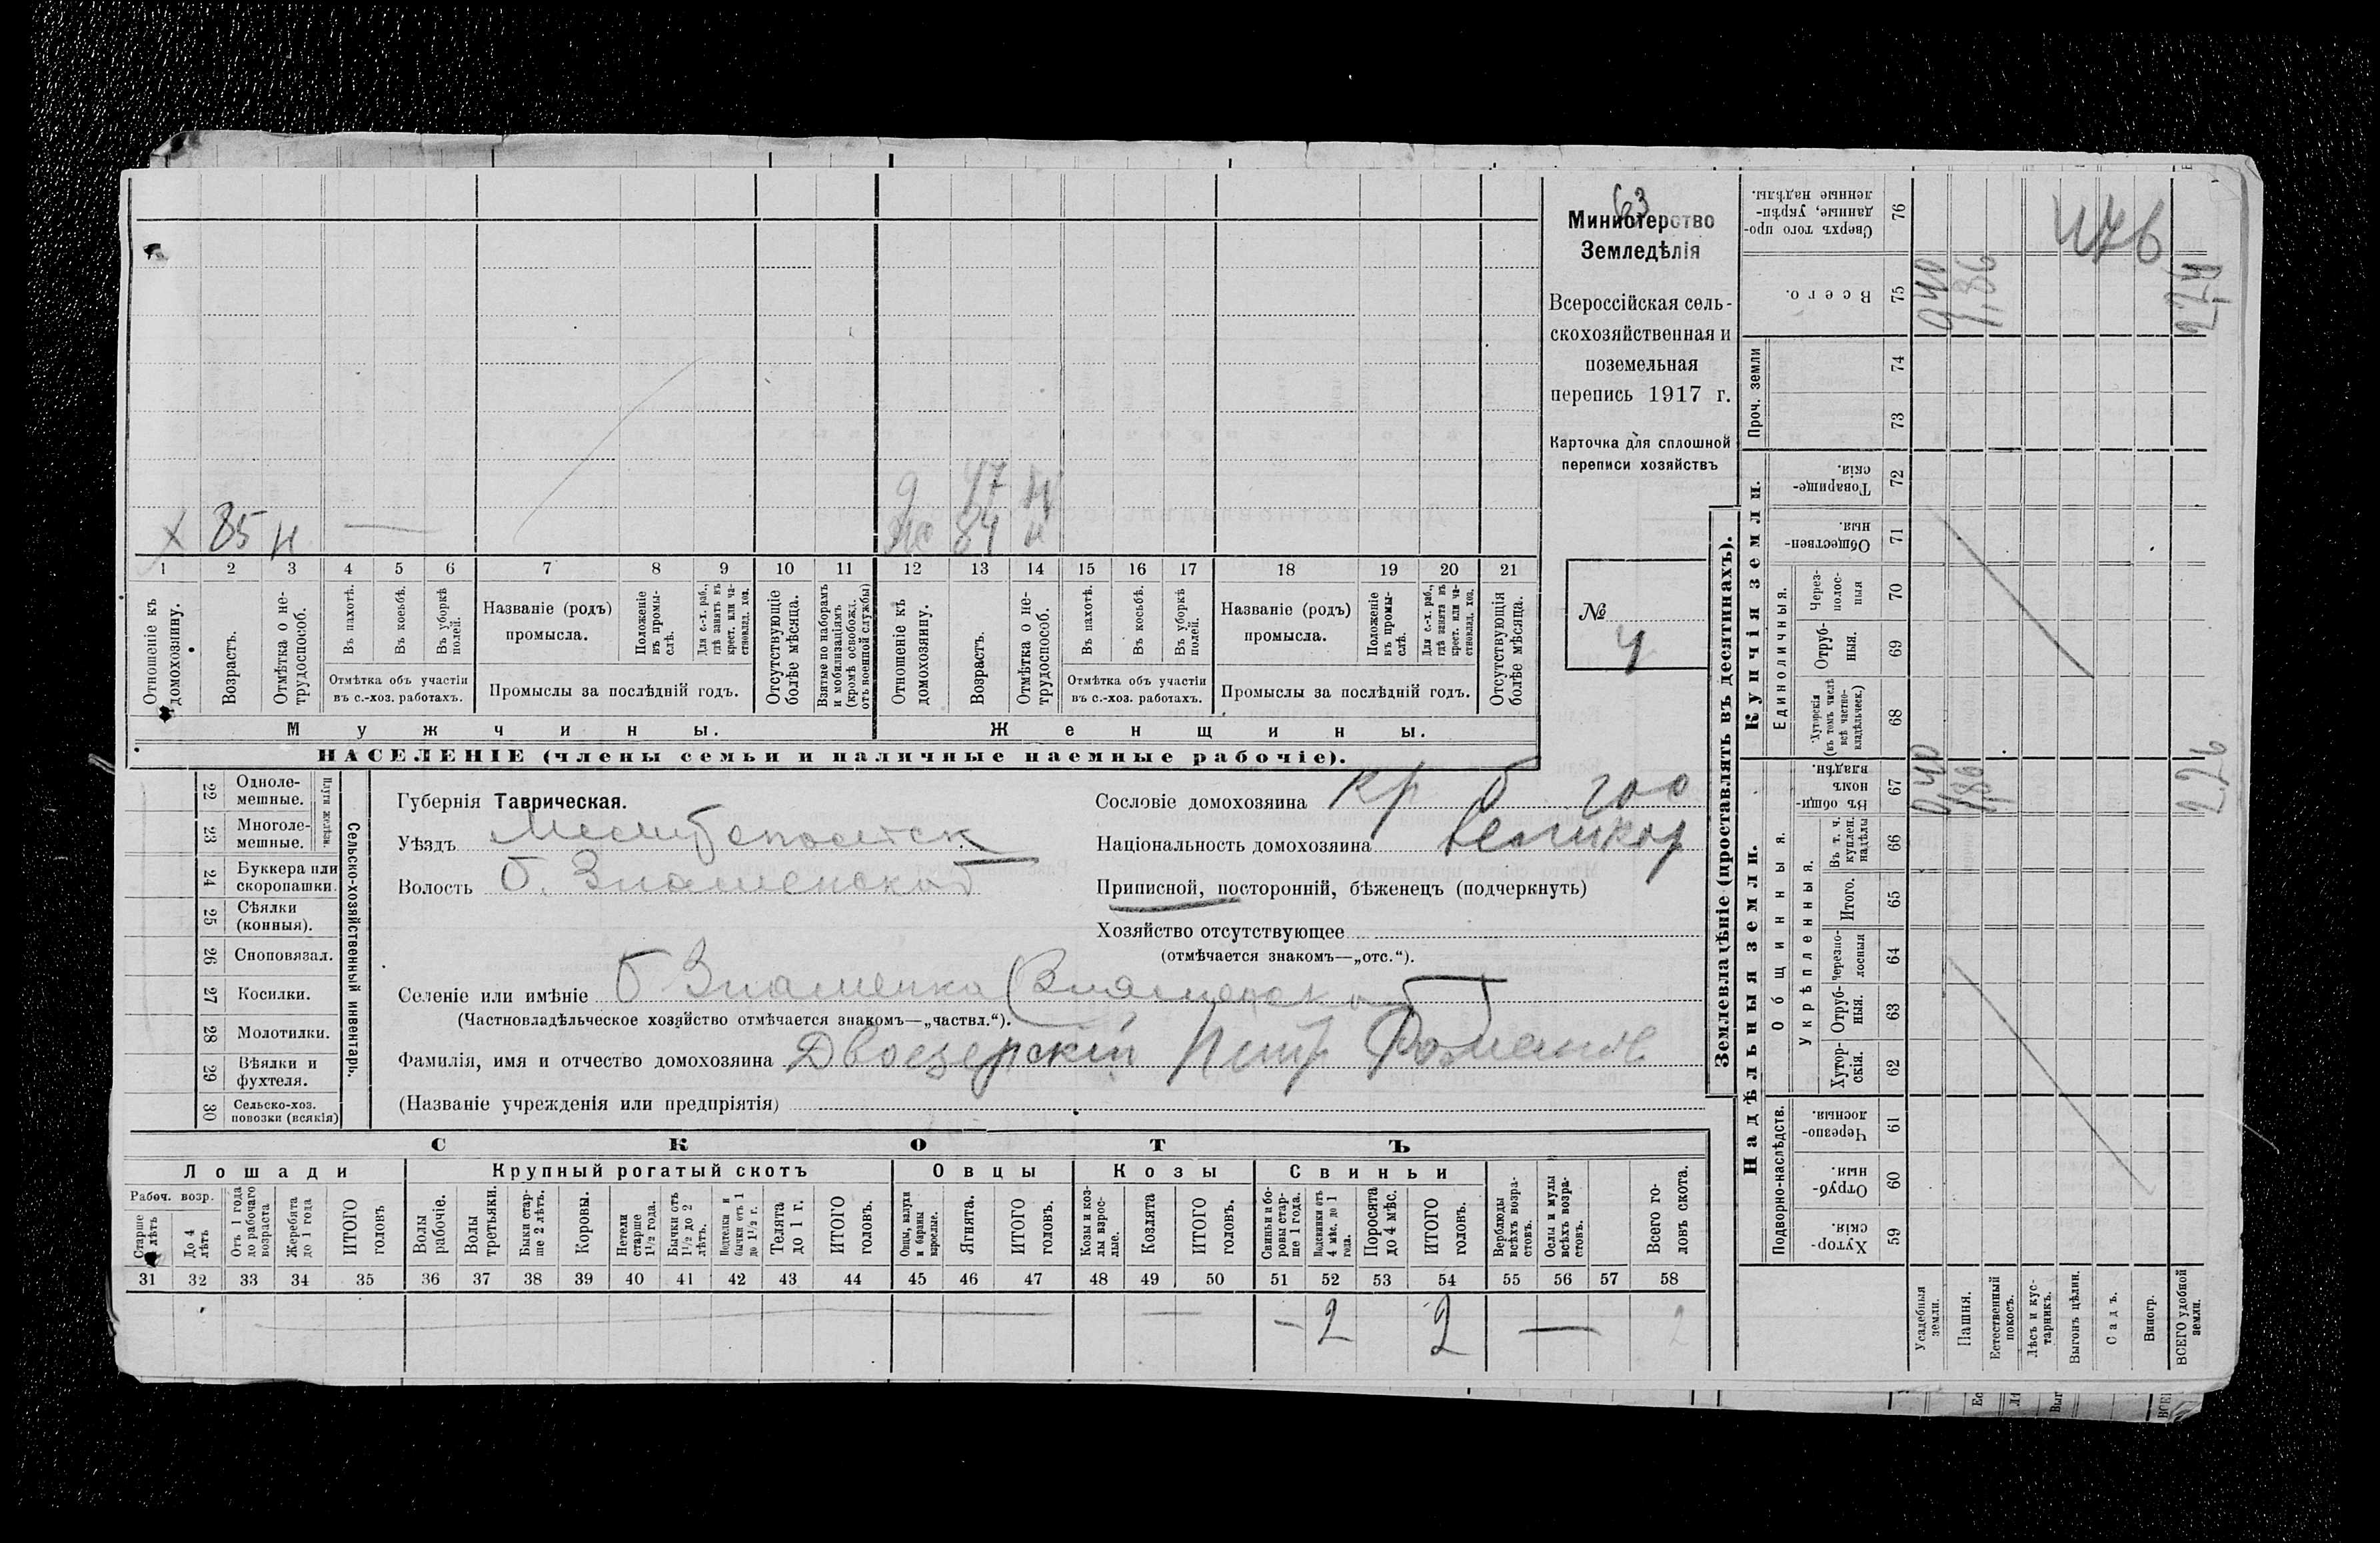 63
Министерство
Земледѣлія
Всероссійская сель-
скохозяйственная и
поземельная
перепись 1917 г.
Карточка для сплошной
переписи хозяйствъ
№
4
д 47 н
х 85 н — 84 н
1 2 3 4 5 6 7 8 9 10 11 12 13 14 15 16 17 18 19 20 21
Отношеніе къ домохозяину.
Возрастъ.
Отмѣтка о не-трудоспособ.
Въ пахотѣ.
Въ косьбѣ.
Въ уборкѣ полей.
Отмѣтка объ участіи
въ с.-хоз. работахъ.
Названіе (родъ)
промысла.
Положеніе въ промы-слѣ.
Для с.-х. раб., гдѣ занятъ въ крест. или ча-стновлад. хоз.
Промыслы за послѣдній годъ.
Отсутствующіе болѣе мѣсяца.
Взятые по наборамъ и мобилизаціямъ (кромѣ освобожд. отъ военной службы)
Отношеніе къ домохозяину.
Возрастъ.
Отмѣтка о не-трудоспособ.
Въ пахотѣ.
Въ косьбѣ.
Въ уборкѣ полей.
Отмѣтка объ участіи
въ с.-хоз. работахъ.
Названіе (родъ)
промысла.
Положеніе въ промы-слѣ.
Для с.-х. раб., гдѣ занята въ крест. или ча-стновлад. хоз.
Промыслы за послѣдній годъ.
Отсутствующія болѣе мѣсяца.
Мужчины.
Женщины.
НАСЕЛЕНІЕ (члены семьи и наличные наемные рабочіе).
22 Одноле-мешные.
23 Многоле-мешные.
Плуги желѣзн.
24 Буккера или скоропашки.
25 Сѣялки (конныя).
26 Сноповязал.
27 Косилки.
28 Молотилки.
29 Вѣялки и фухтеля.
30 Сельско-хоз. повозки (всякія)
Сельско-хозяйственный инвентарь.
Губернія Таврическая.
Уѣздъ Мелитопольск
Волость Б. Знаменской
Сословіе домохозяина кр б гос
Національность домохозяина великор
Приписной, посторонній, бѣженецъ (подчеркнуть)
Хозяйство отсутствующее
(отмѣчается знакомъ—„отс.“).
Селеніе или имѣніе Б Знаменка
(Частновладѣльческое хозяйство отмѣчается знакомъ—„частвл.“).
Фамилія, имя и отчество домохозяина Двоезерскій Петр Романов
(Названіе учрежденія или предпріятія)
СКОТЪ
Лошади
Крупный рогатый скотъ
Овцы
Козы
Свиньи
Рабоч. возр.
Старше лѣтъ
До 4 лѣтъ
Отъ 1 года до рабочаго возраста
Жеребята до 1 года
ИТОГО головъ
Волы рабочіе.
Волы третьяки.
Быки стар-ше 2 лѣтъ.
Коровы.
Нетели старше 1½ года.
Бычки отъ 1½ до 2 лѣтъ.
Подтелки и бычки отъ 1 до 1½ г.
Телята до 1 г.
ИТОГО головъ.
Овцы, валухи и бараны взрослые.
Ягнята.
ИТОГО головъ.
Козы и коз-лы взрос-лые.
Козлята
ИТОГО головъ.
Свиньи и бо-ровы стар-ше 1 года.
Подсвинки отъ 4 мѣс. до 1 года.
Поросята до 4 мѣс.
ИТОГО головъ.
Верблюды всѣхъ возра-стовъ.
Ослы и мулы всѣхъ возра-стовъ.
Всего го-ловъ скота.
31 32 33 34 35 36 37 38 39 40 41 42 43 44 45 46 47 48 49 50 51 52 53 54 55 56 57 58
— — — 2 2 — 2
Землевладѣніе (проставлять въ десятинахъ).
Надѣльныя земли.
Купчія земли.
Проч. земли
Подворно-наслѣдств.
Общинныя.
Укрѣпленныя.
Единоличныя.
Сверхъ того про-данные, укрѣп-ленные надѣлы. 76
Всего. 75
74
73
Товарище-скія. 72
Обществен-ныя. 71
Через-полос-ныя 70
Отруб-ныя. 69
Хуторскія (въ томъ числѣ всѣ частно-владѣльческ.) 68
Въ общи-номъ владѣн. 67
Въ т. ч. куплен. надѣлы 66
Итого. 65
Черезпо-лосныя 64
Отруб-ныя. 63
Хутор-скія. 62
Черезпо-лосныя. 61
Отруб-ныя. 60
Хутор-скія. 59
Усадебныя земли.
Пашня.
Естественный покосъ.
Лѣсъ и кус-тарникъ.
Выгонъ цѣлин.
Садъ.
Виногр.
ВСЕГО удобной земли.
0,40
1,86
476
0,40
1,86
2,26